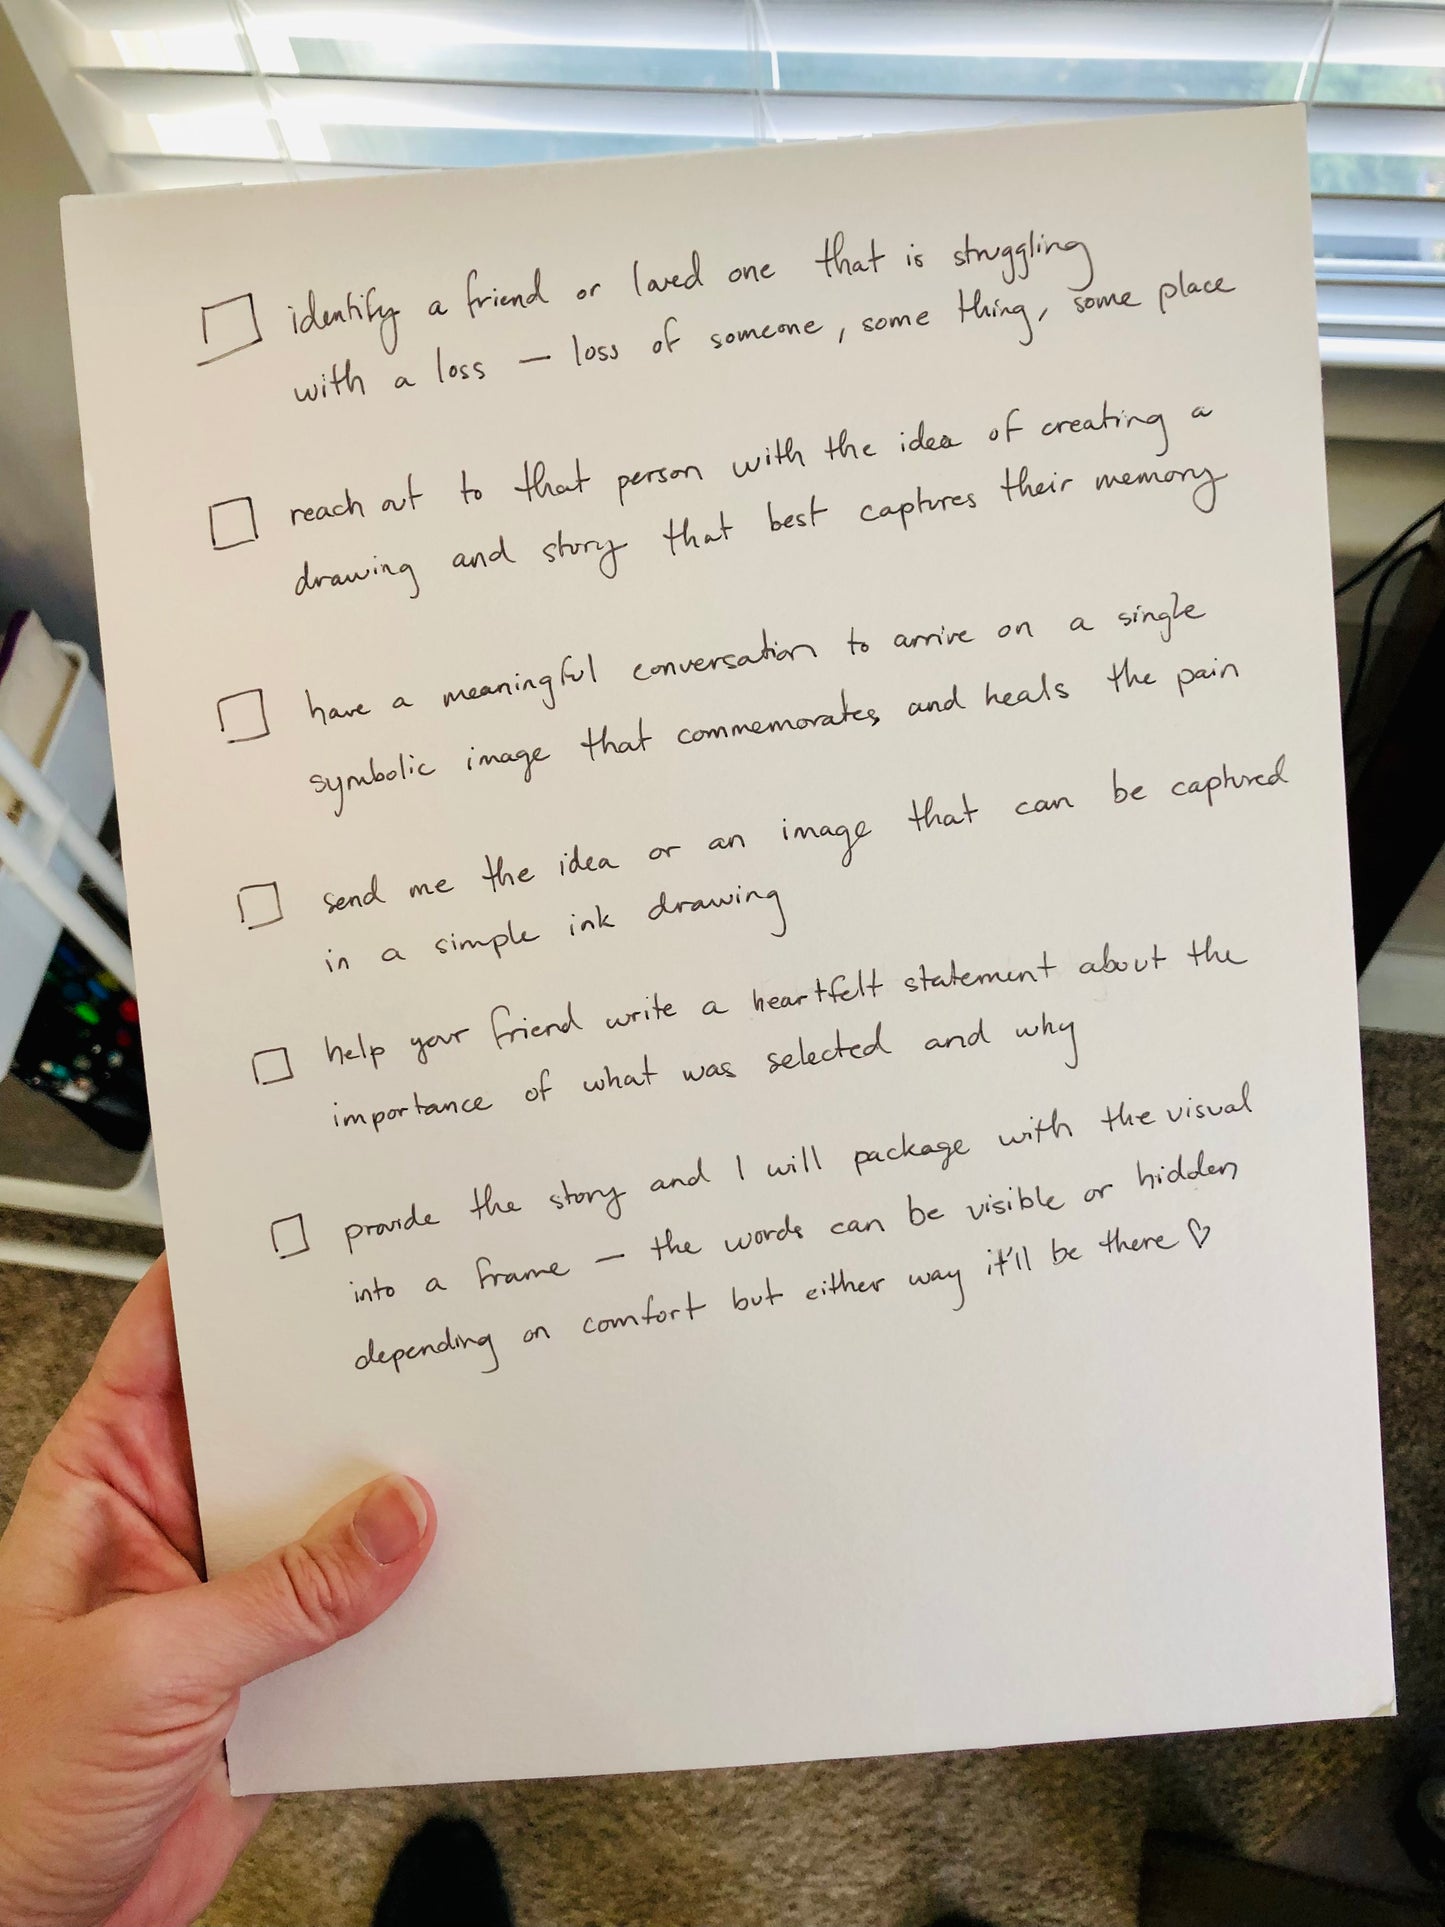 identify a friend or loved one that is struggling
with a loss — loss of someone, some thing, some place
reach out to that person with the idea of creating a
drawing and story that best captures their memory
have a meaningful conversation to arrive on a single
symbolic image that commemorates and heals the pain
send me the idea or an image that can be captured
in a simple ink drawing
help your friend write a heartfelt statement about the
importance of what was selected and why
provide the story and I will package with the visual
into a frame — the words can be visible or hidden
depending on comfort but either way it'll be there ♡